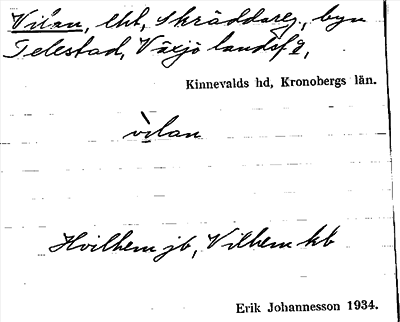 Vilan, lht, Skräddareg., byn
Telestad, Växjö landsf g,
Kinnevalds hd, Kronobergs län.
vilan
Hvilhem jb, Vilhem kb
Erik Johannesson 1934.